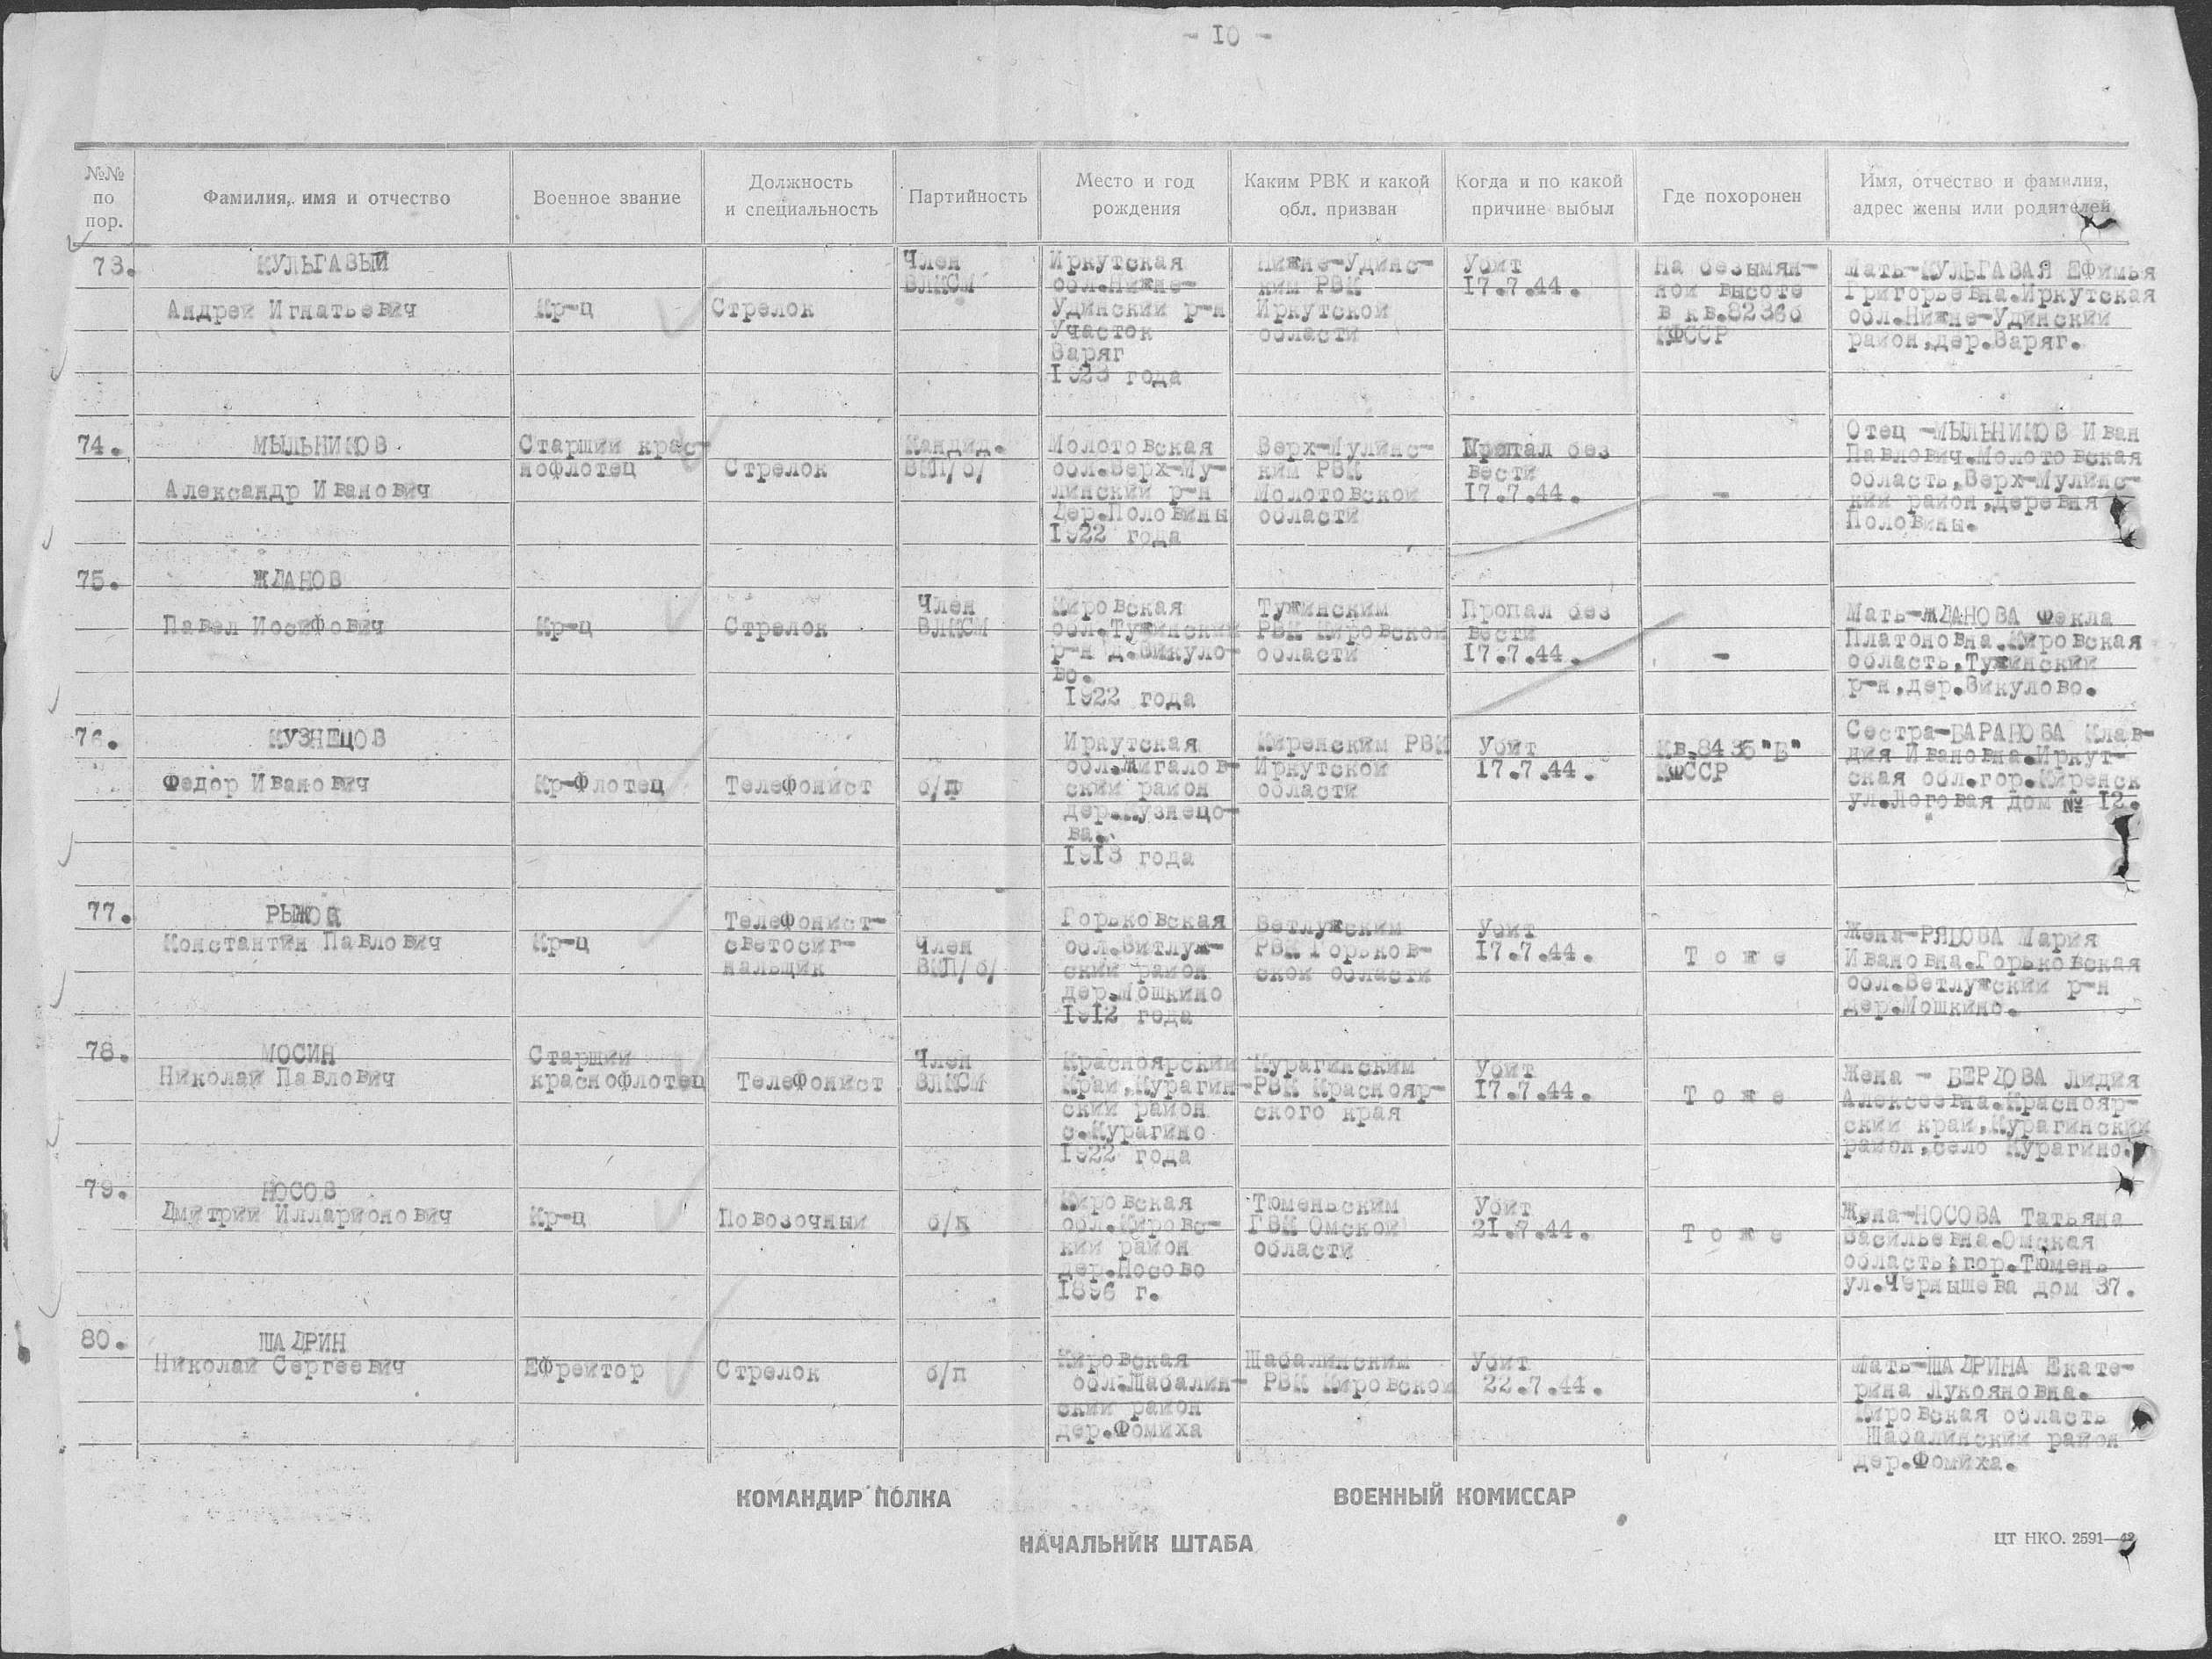 - 10 -
№№ по пор.
Фамилия, имя и отчество
Военное звание
Должность и специальность
Партийность
Место и год рождения
Каким РВК и какой обл. призван
Когда и по какой причине выбыл
Где похоронен
Имя, отчество и фамилия, адрес жены или родителей
73.
КУЛЬГАВЫЙ
Андрей Игнатьевич
Кр-ц
Стрелок
Член
ВЛКСМ
Иркутская
обл.Нижне-
Удинский р-н
Участок
Варяг
1923 года
Нижне-Удинс-
ким РВК
Иркутской
области
Убит
17.7.44.
На безымян-
ной высоте
в кв.8236б
КФССР
Мать-КУЛЬГАВАЯ Ефимья
Григорьевна.Иркутская
обл.Нижне-Удинский
район,дер.Варяг.
74.
МЫЛЬНИКОВ
Александр Иванович
Старший крас-
нофлотец
Стрелок
Кандид.
ВКП/б/
Молотовская
обл.Верх-Му-
линский р-н
Дер.Половины
1922 года
Верх-Мулинс-
ким РВК
Молотовской
области
Пропал без
вести
17.7.44.
-
Отец -МЫЛЬНИКОВ Иван
Павлович.Молотовская
область,Верх-Мулинс-
кий район,деревня
Половины.
75.
ЖДАНОВ
Павел Иосифович
Кр-ц
Стрелок
Член
ВЛКСМ
Кировская
обл.Тужинский
р-н д.Викуло-
во.
1922 года
Тужинским
РВК Кировской
области
Пропал без
вести
17.7.44.
-
Мать-ЖДАНОВА Фекла
Платоновна.Кировская
область,Тужинский
р-н,дер.Викулово.
76.
КУЗНЕЦОВ
Федор Иванович
Кр-Флотец
Телефонист
б/п
Иркутская
обл.Жигалов-
ский район
дер.Кузнецо-
ва.
1913 года
Киренским РВК
Иркутской
области
Убит
17.7.44.
Кв.8436"Б"
КФССР
Сестра-БАРАНОВА Клав-
дия Ивановна.Иркут-
ская обл.гор.Киренск
ул.Логовая дом № 12.
77.
РЫЖОВ
Константин Павлович
Кр-ц
Телефонист-
светосиг-
нальщик
Член
ВКП/б/
Горьковская
обл.Витлуж-
ский район
дер.Мошкино
1912 года
Ветлужским
РВК Горьков-
ской области
Убит
17.7.44.
Т о ж е
Жена-РЯБОВА Мария
Ивановна.Горьковская
обл.Ветлужский р-н
дер.Мошкино.
78.
МОСИН
Николай Павлович
Старший
краснофлотец
Телефонист
Член
ВЛКСМ
Красноярский
Край,Курагин-
ский район
с.Курагино
1922 года
Курагинским
РВК Краснояр-
ского края
Убит
17.7.44.
Т о ж е
Жена - БЕРДОВА Лидия
Алексеевна.Краснояр-
ский край,Курагинский
район,село Курагино.
79.
НОСОВ
Дмитрий Илларионович
Кр-ц
Повозочный
б/к
Кировская
обл.Кировс-
кий район
дер.Носово
1896 г.
Тюменьским
ГВК Омской
области
Убит
21.7.44.
Т о ж е
Жена-НОСОВА Татьяна
Васильевна.Омская
область,гор.Тюмень
ул.Чернышева дом 37.
80.
ШАДРИН
Николай Сергеевич
Ефрейтор
Стрелок
б/п
Кировская
обл.Шабалин-
ский район
дер.Фомиха
Шабалинским
РВК Кировской
Убит
22.7.44.
Мать-ШАДРИНА Екате-
рина Лукояновна.
Кировская область
Шабалинский район
дер.Фомиха.
КОМАНДИР ПОЛКА
ВОЕННЫЙ КОМИССАР
НАЧАЛЬНИК ШТАБА
ЦТ НКО. 2591—42